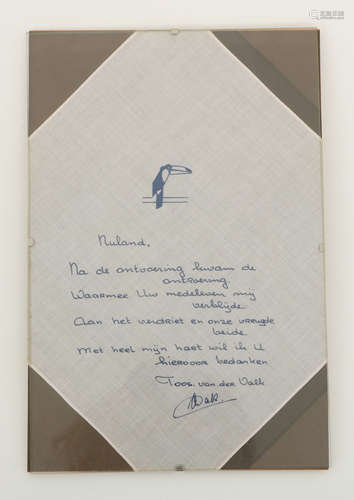 Nuland,
Na de ontvoering kwam de
ontroering
Waarmee Uw medeleven mij
verblijde
Aan het verdriet en onze vreugde
beide
Met heel mijn hart wil ik U
hiervoor bedanken
Toos. van der Valk